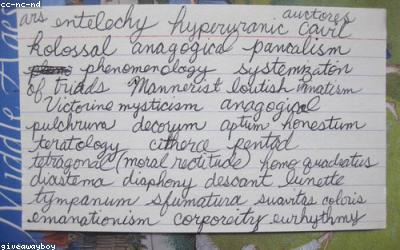 cc-nc-nd
auctores
ars entelechy hyperuranic cavil
kolossal anagogica pancalism
phenomenology systemization
of triads Mannerist loutish
Victorine mysticism anagogical
pulchrum decorum aptum honestum
teratology citherce pentad
tetragonal (moral rectitude) homo quadratus
diastema diaphony descant lunette
tympanum sfumatura suavitas coloris
emanationism corporeity eurhythmy
Middle Age
giveawayboy